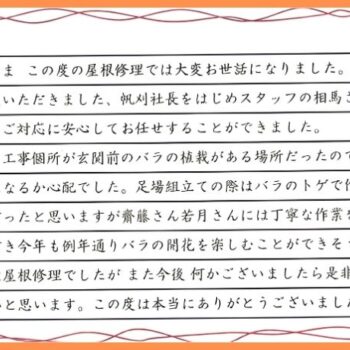 ま この度の屋根修理では大変お世話になりました。
いただきました、帆刈社長をはじめスタッフの相馬さ
ご対応に安心してお任せすることができました。
工事個所が玄関前のバラの植栽がある場所だったので
なるか心配でした。足場組立ての際はバラのトゲで作
だったと思いますが齋藤さん若月さんには丁寧な作業を
き今年も例年通りバラの開花を楽しむことができそう
屋根修理でしたが また今後 何かございましたら是非
いと思います。この度は本当にありがとうございました